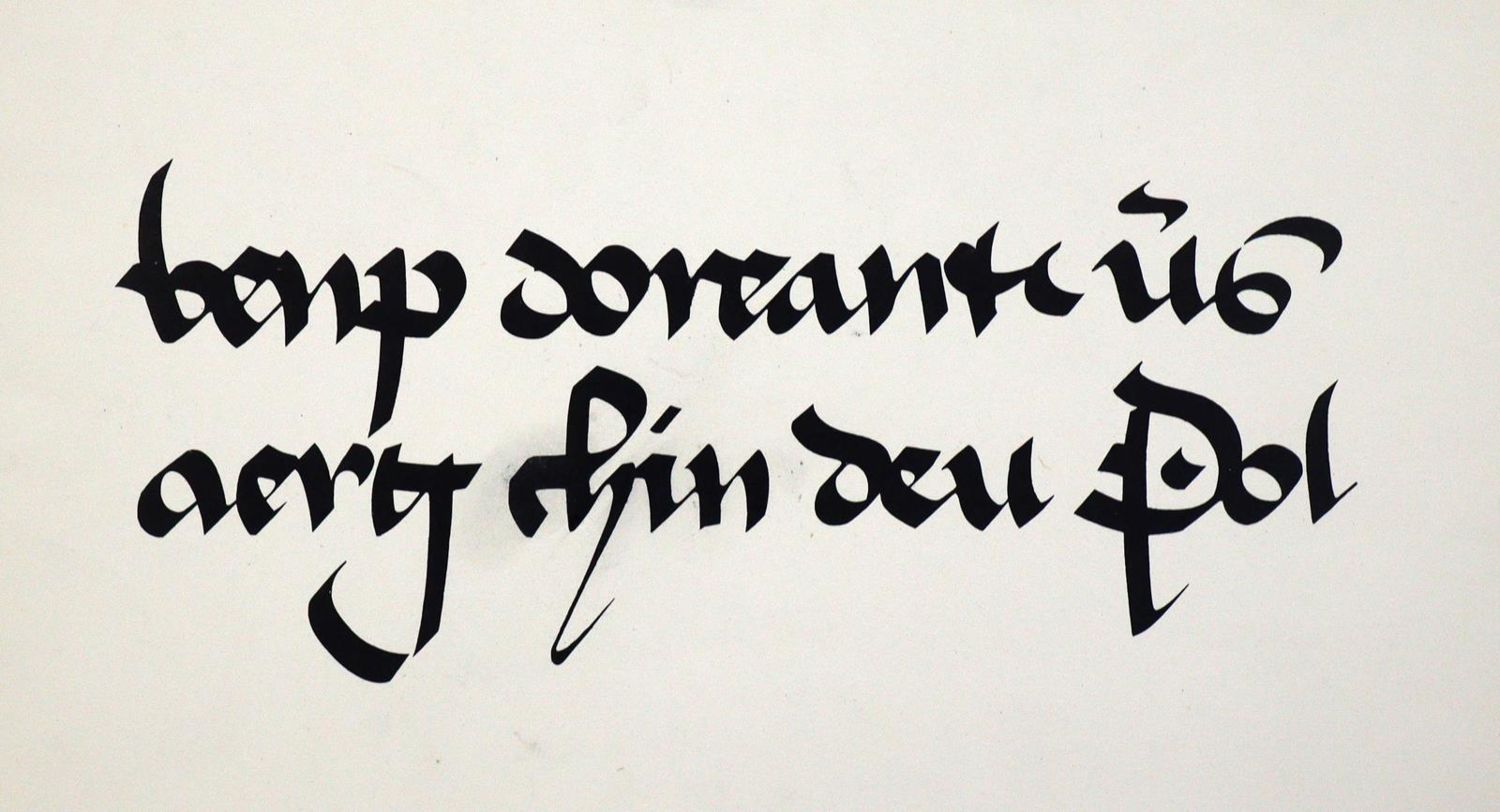 benp doreante ūs
aerg chin deu Pol